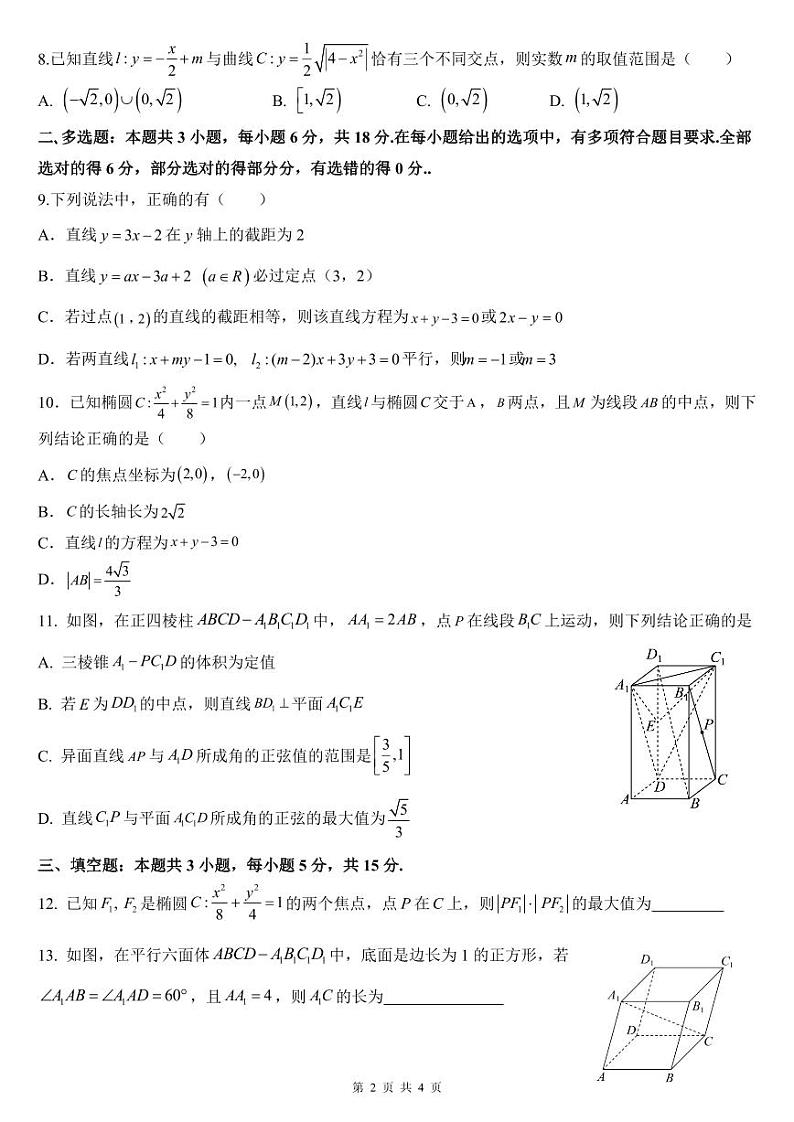 8.已知直线 l : y = −x/2 + m 与曲线 C : y = 1/2 √|4 − x²| 恰有三个不同交点，则实数 m 的取值范围是（　　）
A. (−√2,0)∪(0, √2)　　B. [1, √2)　　C. (0, √2)　　D. (1, √2)
二、多选题：本题共 3 小题，每小题 6 分，共 18 分.在每小题给出的选项中，有多项符合题目要求.全部
选对的得 6 分，部分选对的得部分分，有选错的得 0 分..
9.下列说法中，正确的有（　　）
A．直线 y = 3x − 2 在 y 轴上的截距为 2
B．直线 y = ax − 3a + 2 (a ∈ R) 必过定点（3，2）
C．若过点 (1，2) 的直线的截距相等，则该直线方程为 x + y − 3 = 0 或 2x − y = 0
D．若两直线 l₁ : x + my − 1 = 0, l₂ : (m − 2)x + 3y + 3 = 0 平行，则m = −1 或m = 3
10．已知椭圆 C : x²/4 + y²/8 = 1内一点 M (1,2)，直线 l 与椭圆 C 交于 A，B 两点，且 M 为线段 AB 的中点，则下
列结论正确的是（　　）
A．C 的焦点坐标为 (2,0)，(−2,0)
B．C 的长轴长为 2√2
C．直线 l 的方程为 x + y − 3 = 0
D．|AB| = 4√3/3
11. 如图，在正四棱柱 ABCD − A₁B₁C₁D₁ 中，AA₁ = 2AB，点 P 在线段 B₁C 上运动，则下列结论正确的是
A. 三棱锥 A₁ − PC₁D 的体积为定值
B. 若 E 为 DD₁ 的中点，则直线 BD₁ ⊥ 平面 A₁C₁E
C. 异面直线 AP 与 A₁D 所成角的正弦值的范围是 [3/5,1]
D. 直线 C₁P 与平面 A₁C₁D 所成角的正弦的最大值为 √5/3
D₁
C₁
A₁
B₁
E
P
D
C
A
B
三、填空题：本题共 3 小题，每小题 5 分，共 15 分.
12. 已知 F₁, F₂ 是椭圆 C : x²/8 + y²/4 = 1 的两个焦点，点 P 在 C 上，则 |PF₁| · |PF₂| 的最大值为
13. 如图，在平行六面体 ABCD − A₁B₁C₁D₁ 中，底面是边长为 1 的正方形，若
∠A₁AB = ∠A₁AD = 60°，且 AA₁ = 4，则 A₁C 的长为
D₁
C₁
A₁
B₁
D
C
A
B
第 2 页 共 4 页